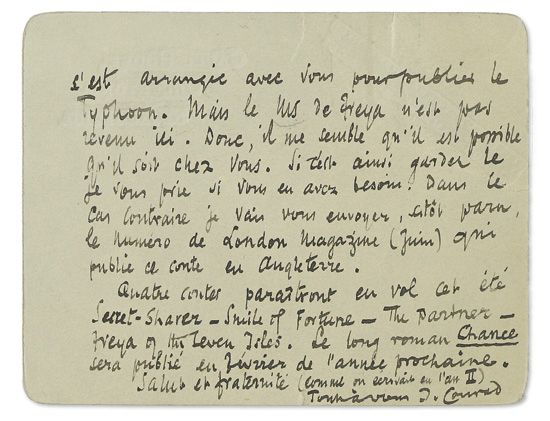 s'est arrangée avec vous pour publier le
Typhoon. Mais le MS de Freya n'est pas
revenu ici. Donc, il me semble qu'il est possible
qu'il soit chez vous. Si c'est ainsi garder le
je vous prie si vous en avez besoin. Dans le
cas contraire je vais vous envoyer, sitôt paru,
le numéro de London Magazine (Juin) qui
publie ce conte en Angleterre.
Quatre contes paraîtront en vol cet été
Secret-Sharer – Smile of Fortune – The Partner –
Freya of the Seven Isles. Le long roman Chance
sera publié en février de l'année prochaine.
Salut et fraternité (comme on écrivait en l'an II)
J. Conrad